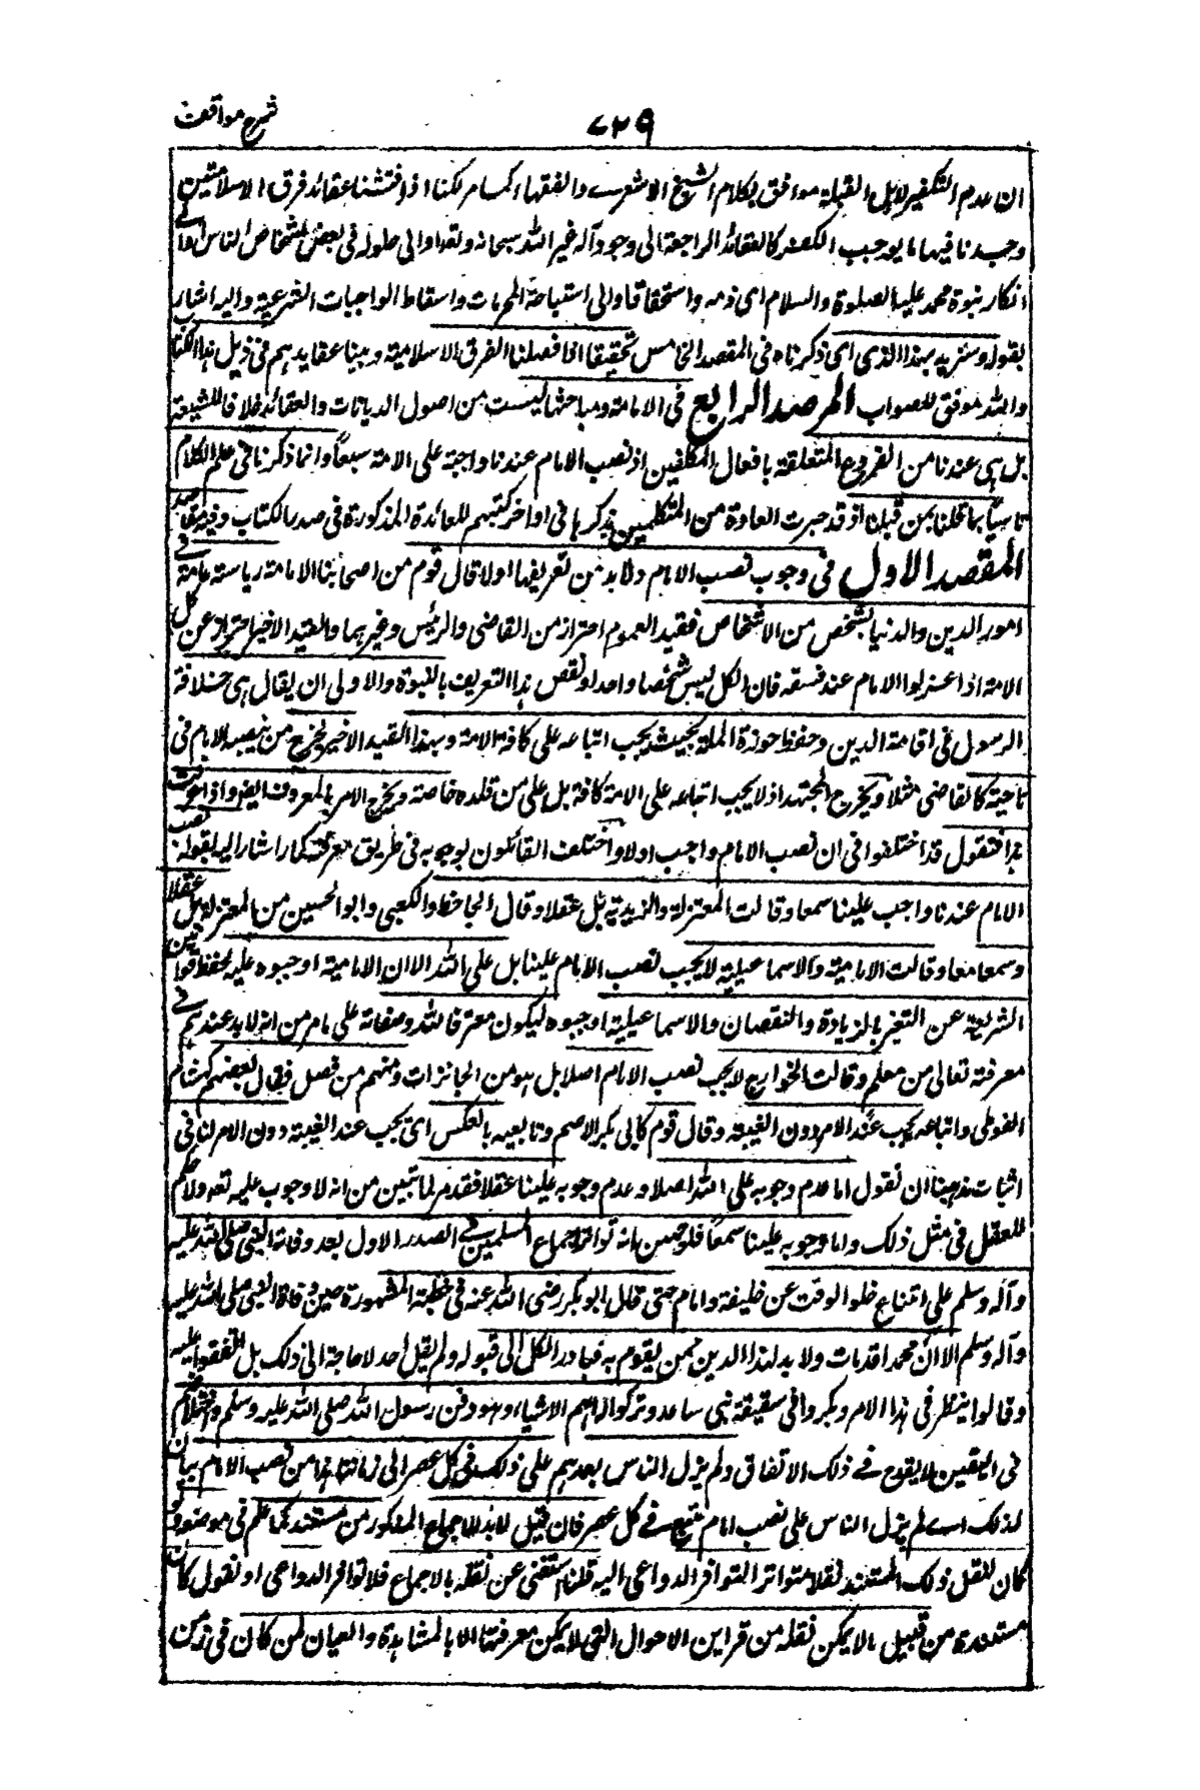 شرح مواقف
٧٢٩
ان عدم التكفير لاهل القبلة موافق لكلام الشيخ الاشعرى والفقهاء كما مر لكنا اذا فتشنا عقائد فرق الاسلاميين
وجدنا فيها ما يوجب الكفر كالعقائد الراجعة الى وجود آله غير الله سبحانه وتعالى او الى حلوله فى بعض اشخاص الناس او الى
انكار نبوة محمد عليه الصلوة والسلام او الى ذمه واستحقاقا او الى استباحة المحرمات واسقاط الواجبات الشرعية واليه اشار
بقوله وسنزيد بهذا الذى اى ذكرناه فى المقصد الخامس تحقيقا اذا فصلنا الفرق الاسلامية وبينا عقايدهم فى ذيل هذا الكتاب
والله موفق للصواب المرصد الرابع فى الامامة ومباحثها ليست من اصول الديانات والعقائد خلافا للشيعة
بل هى عندنا من الفروع المتعلقة بافعال المكلفين اذ نصب الامام عندنا واجبة على الامة سمعاً وانما ذكرنا فى علم الكلام
تاسياً بما قلنا بمن قبلنا اذ قد جرت العادة من المتكلمين بذكرها فى اواخر كتبهم للفائدة المذكورة فى صدر الكتاب وفيه مقاصد
المقصد الاول فى وجوب نصب الامام ولا بد من تعريفها اولا قال قوم من اصحابنا الامامة رياسة عامة فى
امور الدين والدنيا لشخص من الاشخاص فقيد العموم احتراز من القاضى والرئيس وغيرهما والقيد الاخير احتراز عن كل
الامة اذا عزلوا الامام عند فسقه فان الكل ليس شخصا واحدا ونقض هذا التعريف بالنبوة والاولى ان يقال هى خلافة
الرسول فى اقامة الدين وحفظ حوزة الملة بحيث يجب اتباعه على كافة الامة وبهذا القيد الاخير يخرج من ينصبه الامام فى
ناحية كالقاضى مثلا ويخرج المجتهد اذ لا يجب اتباعه على الامة كافة بل على من قلده خاصة ويخرج الامر بالمعروف ايضا واذا عرفت
هذا فنقول قد اختلفوا فى ان نصب الامام واجب اولا واختلف القائلون بوجوبه فى طريق معرفته كما اشار اليه بقوله نصب
الامام عندنا واجب علينا سمعا وقالت المعتزلة والزيدية بل عقلا وقال الجاحظ والكعبى وابو الحسين من المعتزلة بل عقلا
وسمعا معا وقالت الامامية والاسماعيلية لا يجب نصب الامام علينا بل على الله الا ان الامامية اوجبوه عليه لحفظ قوانين
الشريعة عن التغير بالزيادة والنقصان والاسماعيلية اوجبوه ليكون معرفا لله وصفاته على ما مر من انه لا بد عندهم فى
معرفته تعالى من معلم وقالت الخوارج لا يجب نصب الامام اصلا بل هو من الجائزات ومنهم من فصل فقال بعضهم كهشام
الفوطى واتباعه يجب عند الامن دون الفتنة وقال قوم كابى بكر الاصم وتابعيه بالعكس اى يجب عند الفتنة دون الامن لنا فى
اثبات مذهبنا ان نقول اما عدم وجوبه على الله اصلا وعدم وجوبه علينا عقلا فقد مر لما تبين من انه لا وجوب عليه تعالى ولا حكم
للعقل فى مثل ذلك واما وجوبه علينا سمعاً فلوجهين انه تواتر اجماع المسلمين فى الصدر الاول بعد وفاة النبى صلى الله عليه
وآله وسلم على امتناع خلو الوقت عن خليفة وامام حتى قال ابو بكر رضى الله عنه فى خطبته المشهورة حين وفاة النبى صلى الله عليه
وآله وسلم الا ان محمدا قد مات ولا بد لهذا الدين ممن يقوم به فبادر الكل الى قبوله ولم يقل احد لا حاجة الى ذلك بل اتفقوا عليه
وقالوا ينظر فى هذا الامر وبكروا فى سقيفة بنى ساعدة وتركوا له اهم الاشياء وهو دفن رسول الله صلى الله عليه وسلم واختلافهم
فى التعيين لا يقدح فى ذلك الاتفاق ولم يزل الناس بعدهم على ذلك فى كل عصر الى زماننا هذا من نصب الامام بيان
لذلك اى لم يزل الناس على نصب امام متبع فى كل عصر فان قيل لا بد للاجماع المذكور من مستند كما علم فى موضعه ولو
كان لنقل ذلك المستند نقلا متواترا لتوافر الدواعى اليه قلنا استغنى عن نقله بالاجماع فلا توافر الدواعى او نقول كان
مستنده من قبيل ما لا يمكن نقله من قراين الاحوال التى لا يمكن معرفتها الا بالمشاهدة والعيان لمن كان فى زمن